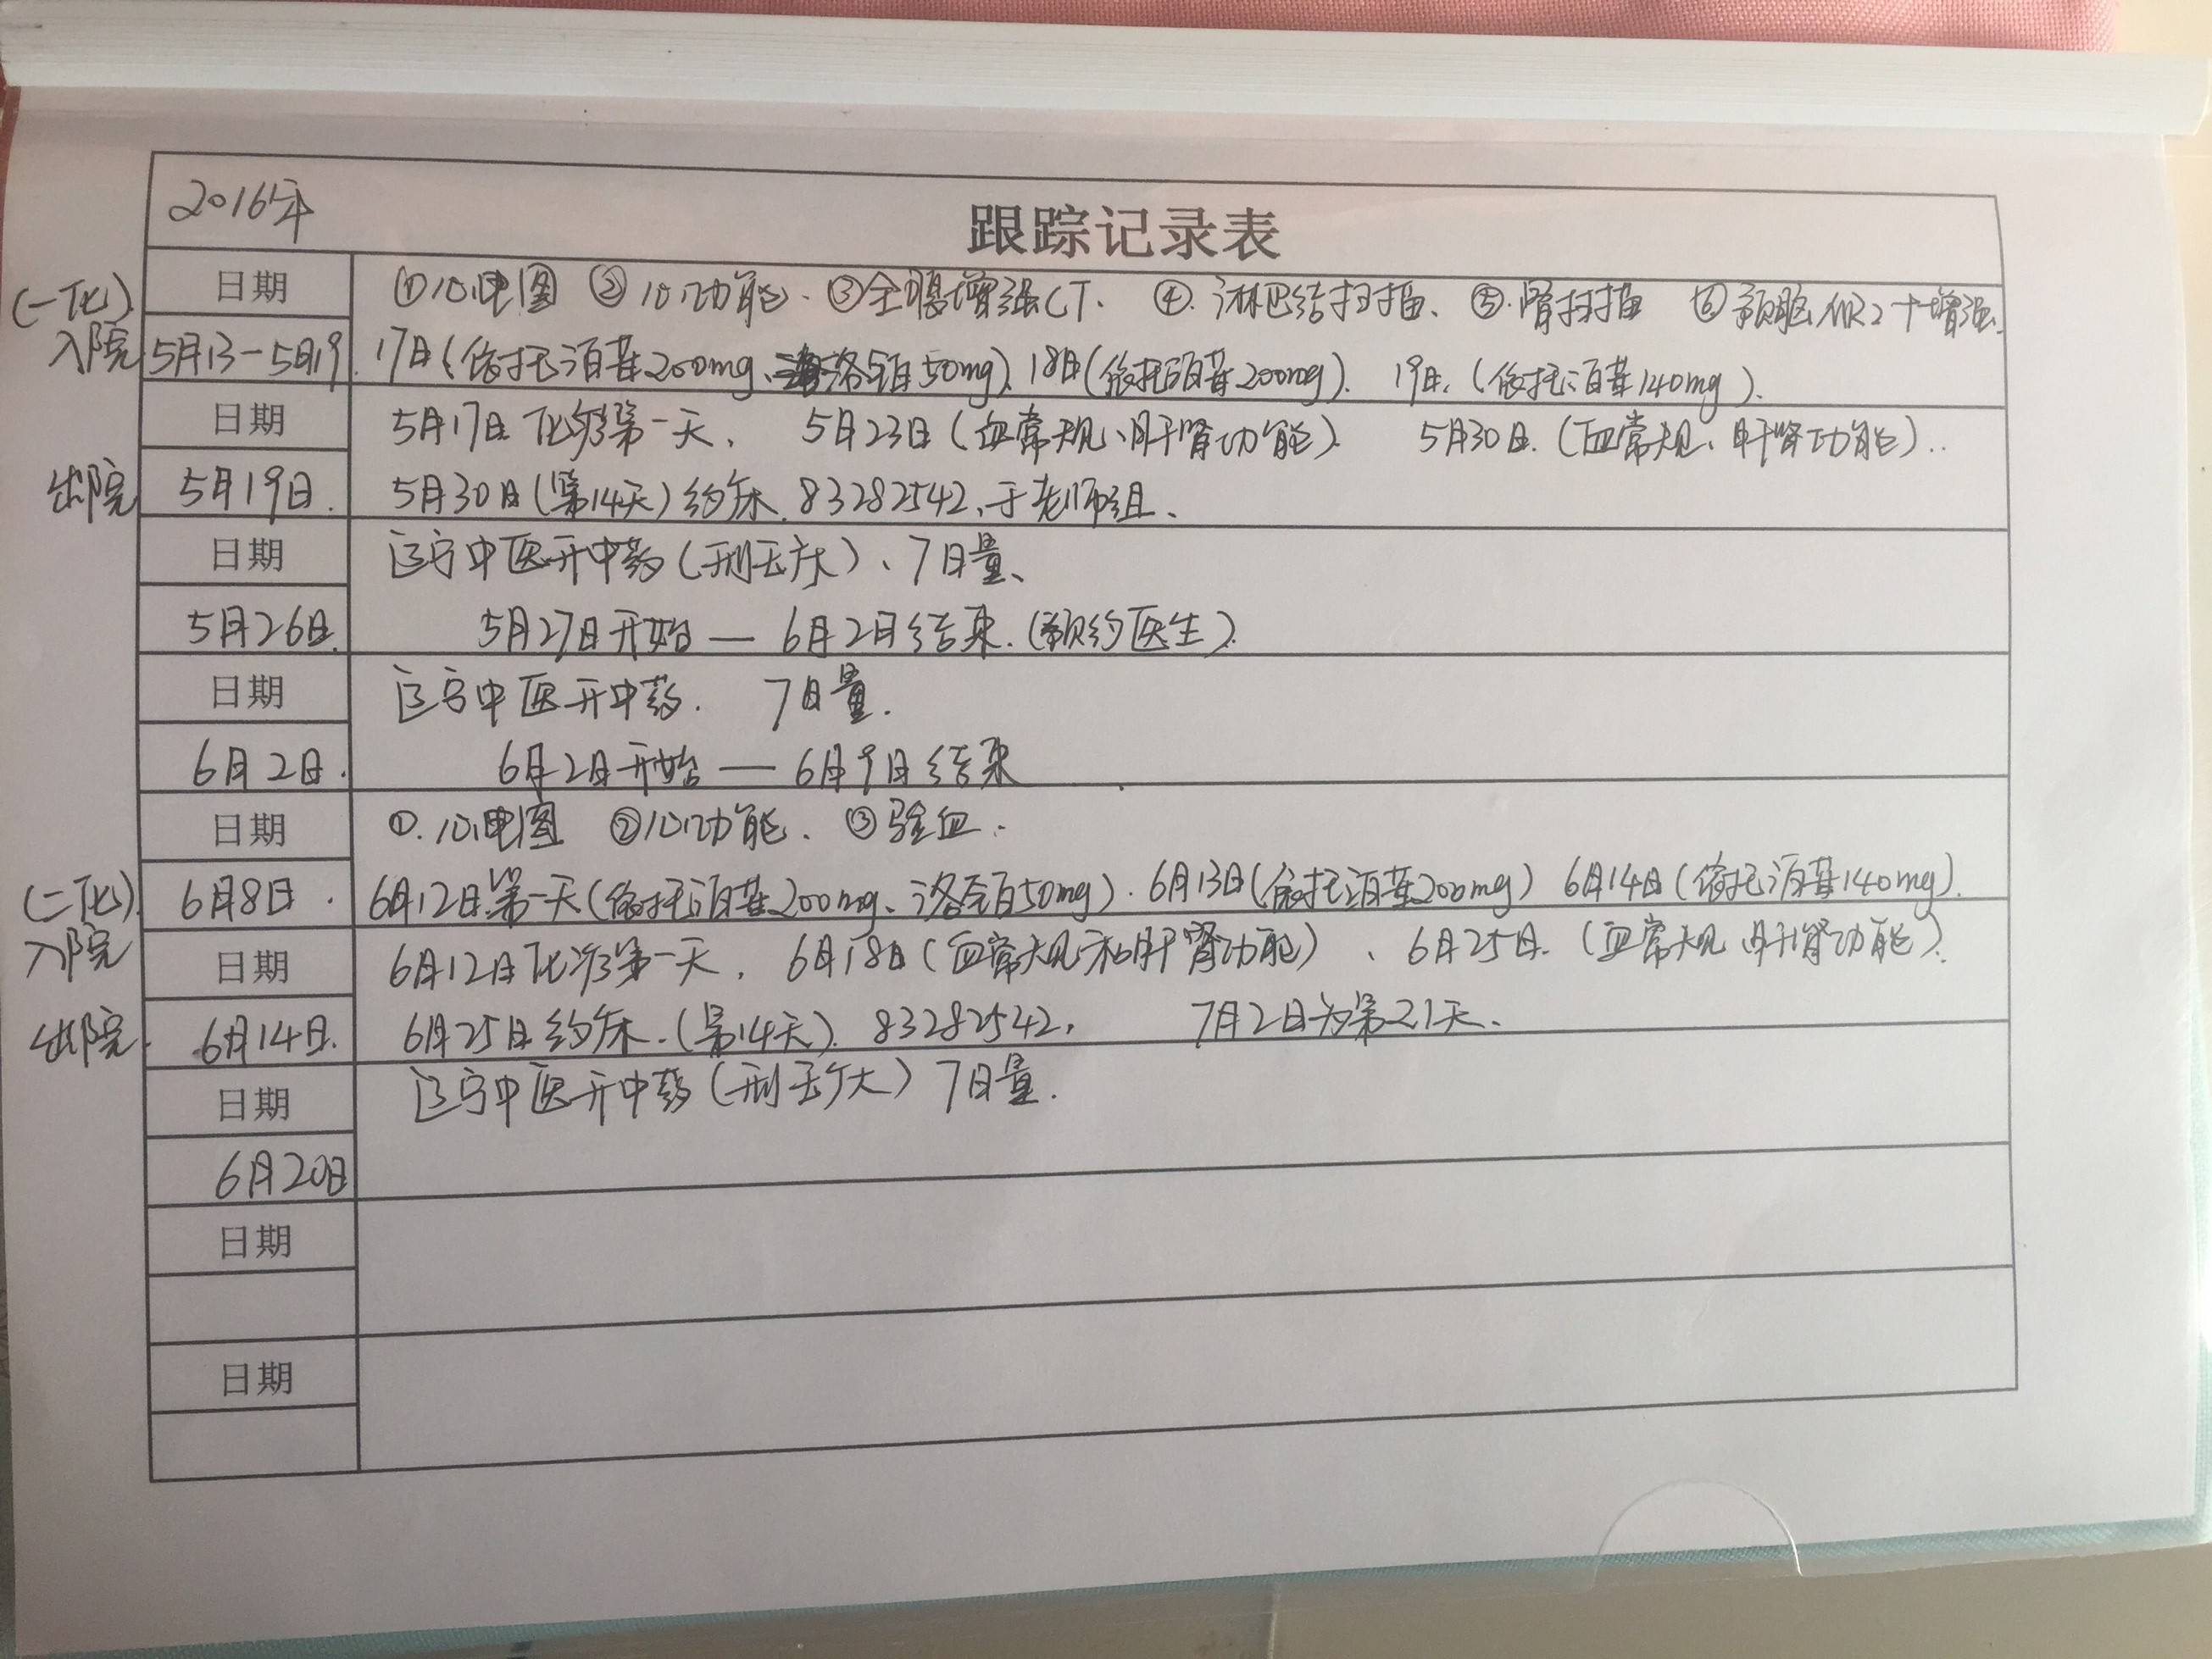 2016年
跟踪记录表
(一化)
入院
日期
①心电图 ②心功能. ③全腹增强CT. ④.淋巴结扫描、⑤.肾扫描 ⑥颅脑MR2十增强.
5月13-5月19
17日(依托泊苷200mg、洛铂50mg). 18日(依托泊苷200mg). 19日.(依托泊苷140mg).
日期
5月17日化疗第一天, 5月23日(血常规、肝肾功能). 5月30日.(血常规、肝肾功能)..
出院
5月19日.
5月30日(第14天)约床.83282542,于老师组、
日期
辽宁中医开中药(刑玉庆)、7日量、
5月26日.
5月27日开始 — 6月2日结束.(预约医生).
日期
辽宁中医开中药. 7日量.
6月2日.
6月2日开始 — 6月9日结束
日期
①.心电图 ②心功能、③验血.
(二化)
入院
6月8日.
6月12日第一天(依托泊苷200mg、洛铂50mg). 6月13日(依托泊苷200mg) 6月14日(依托泊苷140mg).
日期
6月12日化疗第一天, 6月18日(血常规和肝肾功能)、6月25日.(血常规 肝肾功能).
出院.
6月14日.
6月25日约床.(第14天). 83282542, 7月2日为第21天.
日期
辽宁中医开中药(刑玉庆)7日量.
6月20日
日期
日期